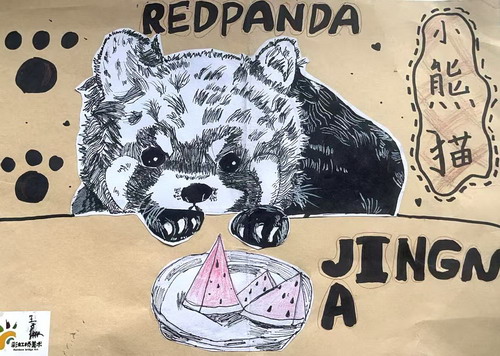 REDPANDA
小
熊
猫
JINGN
A
彩虹桥美术